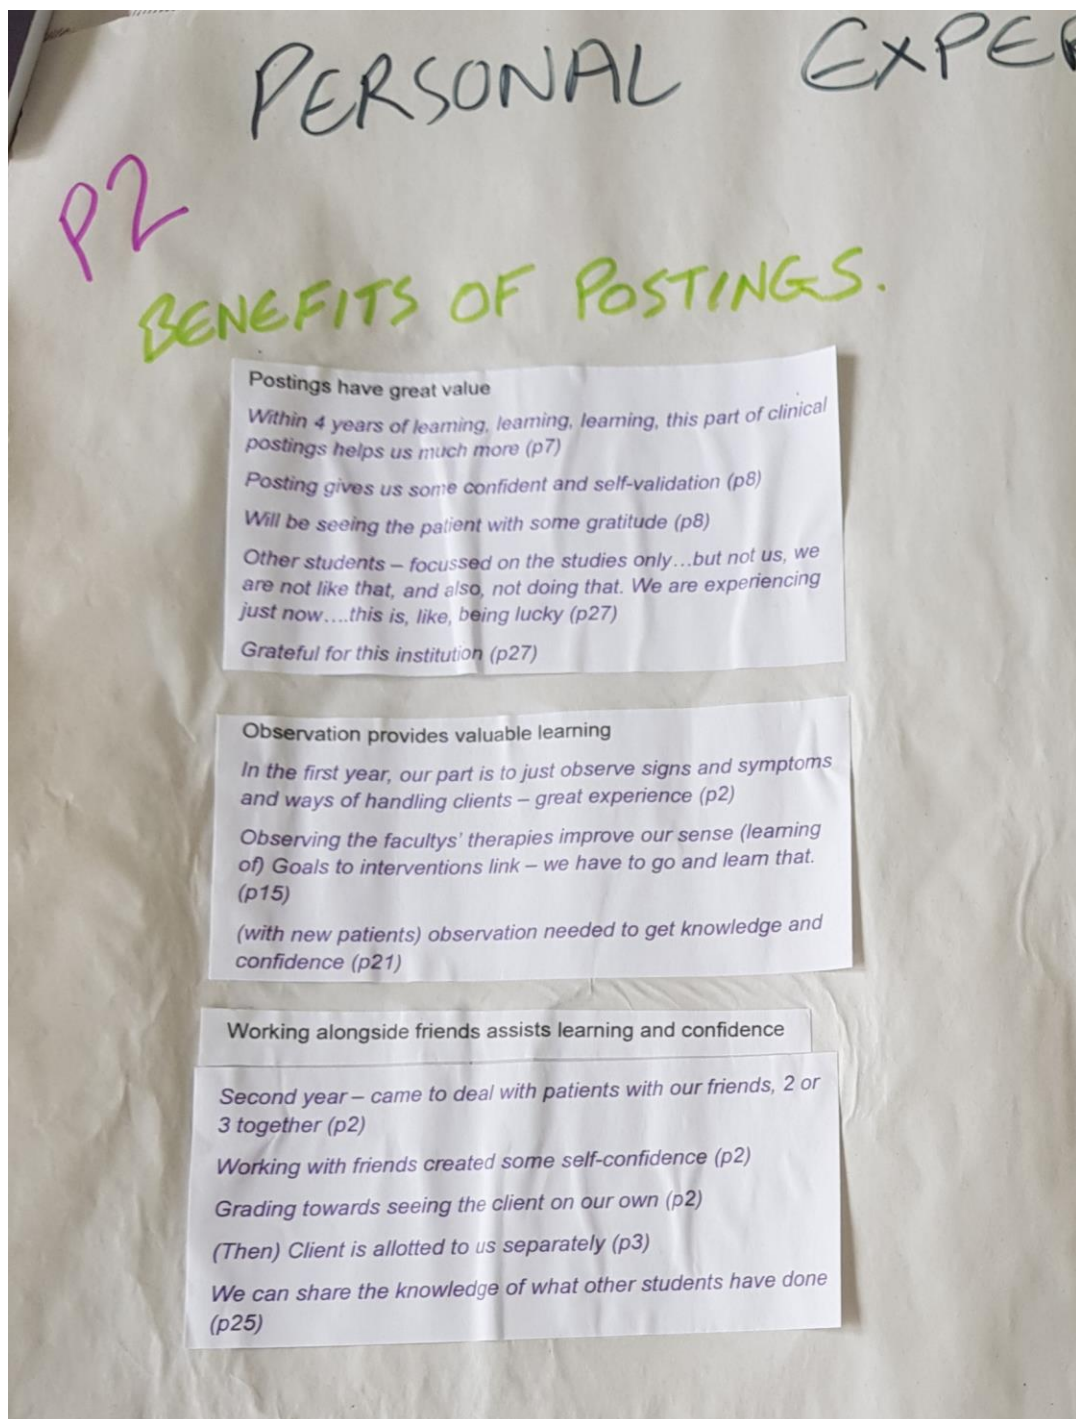 PERSONAL EXPE
P2
BENEFITS OF POSTINGS.
Postings have great value
Within 4 years of learning, learning, learning, this part of clinical
postings helps us much more (p7)
Posting gives us some confident and self-validation (p8)
Will be seeing the patient with some gratitude (p8)
Other students – focussed on the studies only...but not us, we
are not like that, and also, not doing that. We are experiencing
just now....this is, like, being lucky (p27)
Grateful for this institution (p27)
Observation provides valuable learning
In the first year, our part is to just observe signs and symptoms
and ways of handling clients – great experience (p2)
Observing the facultys' therapies improve our sense (learning
of) Goals to interventions link – we have to go and learn that.
(p15)
(with new patients) observation needed to get knowledge and
confidence (p21)
Working alongside friends assists learning and confidence
Second year – came to deal with patients with our friends, 2 or
3 together (p2)
Working with friends created some self-confidence (p2)
Grading towards seeing the client on our own (p2)
(Then) Client is allotted to us separately (p3)
We can share the knowledge of what other students have done
(p25)